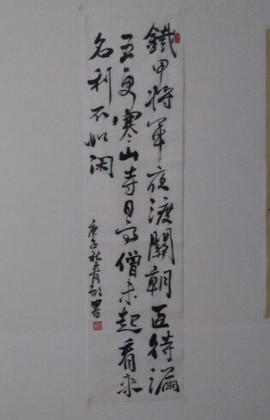 鐵甲將軍夜渡關朝臣待漏
五更寒山寺日高僧未起看來
名利不如閑
庚子秋青書